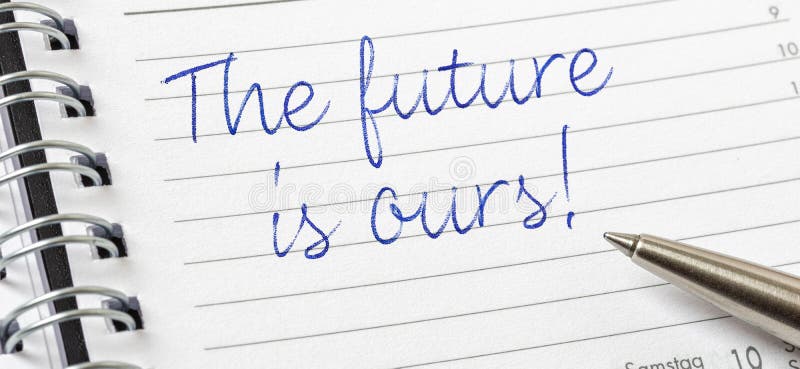 9
The future
10
is ours!
Samstag 10
dreamstime